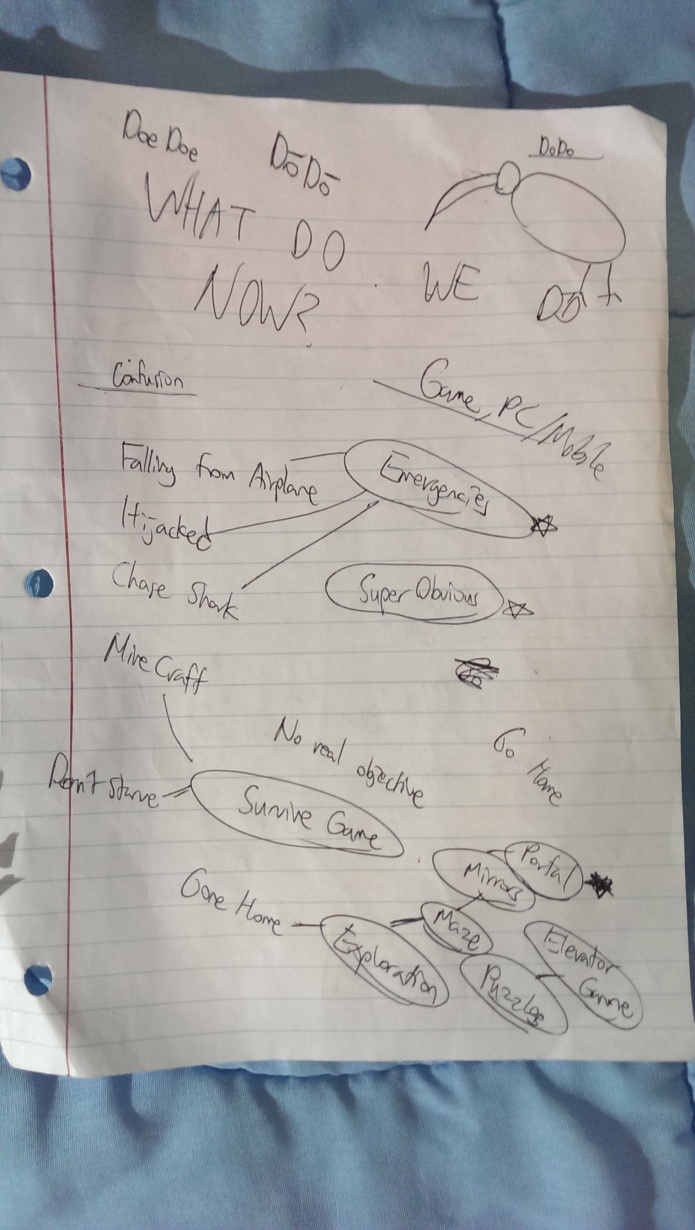 Doe Doe
DōDō
DoDo
WHAT DO
WE
DO
NOW?
Confusion
Game, PC/Mobile
Falling from Airplane
Emergencies
Hijacked
Chase Shark
Super Obvious
MineCraft
No real objective
Go Home
Don't Starve
Survive Game
Portal
Mirrors
Gone Home
Maze
Elevator
Game
Exploration
Puzzles